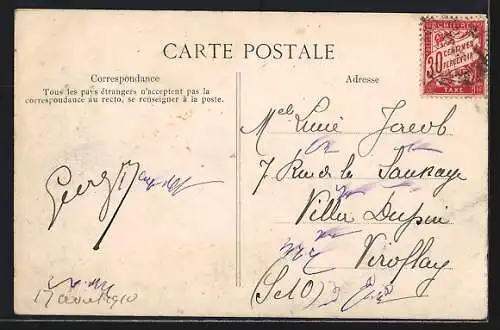 CARTE POSTALE
Correspondance
Tous les pays étrangers n'acceptent pas la
correspondance au recto, se renseigner à la poste.
Adresse
CHIFFRE
30 CENTIMES
À PERCEVOIR
TAXE
Melle Lucie Jacob
7 Rue de la Saussaye
Villa Dupin
Viroflay
(S et O)
Georges
17 avril 1910